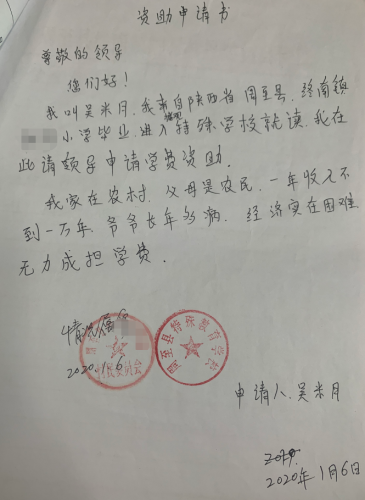 资助申请书
尊敬的领导
您们好!
我叫吴米月,我来自陕西省周至县,终南镇
小学毕业,进入特殊学校就读,我在
此请领导申请学费资助.
我家在农村.父母是农民.一年收入不
到一万年.爷爷长年多病.经济实在困难
无力成担学费.
情况属实
2020.1.6
村民委员会
周至县特殊教育学校
申请人.吴米月
2020年1月6日